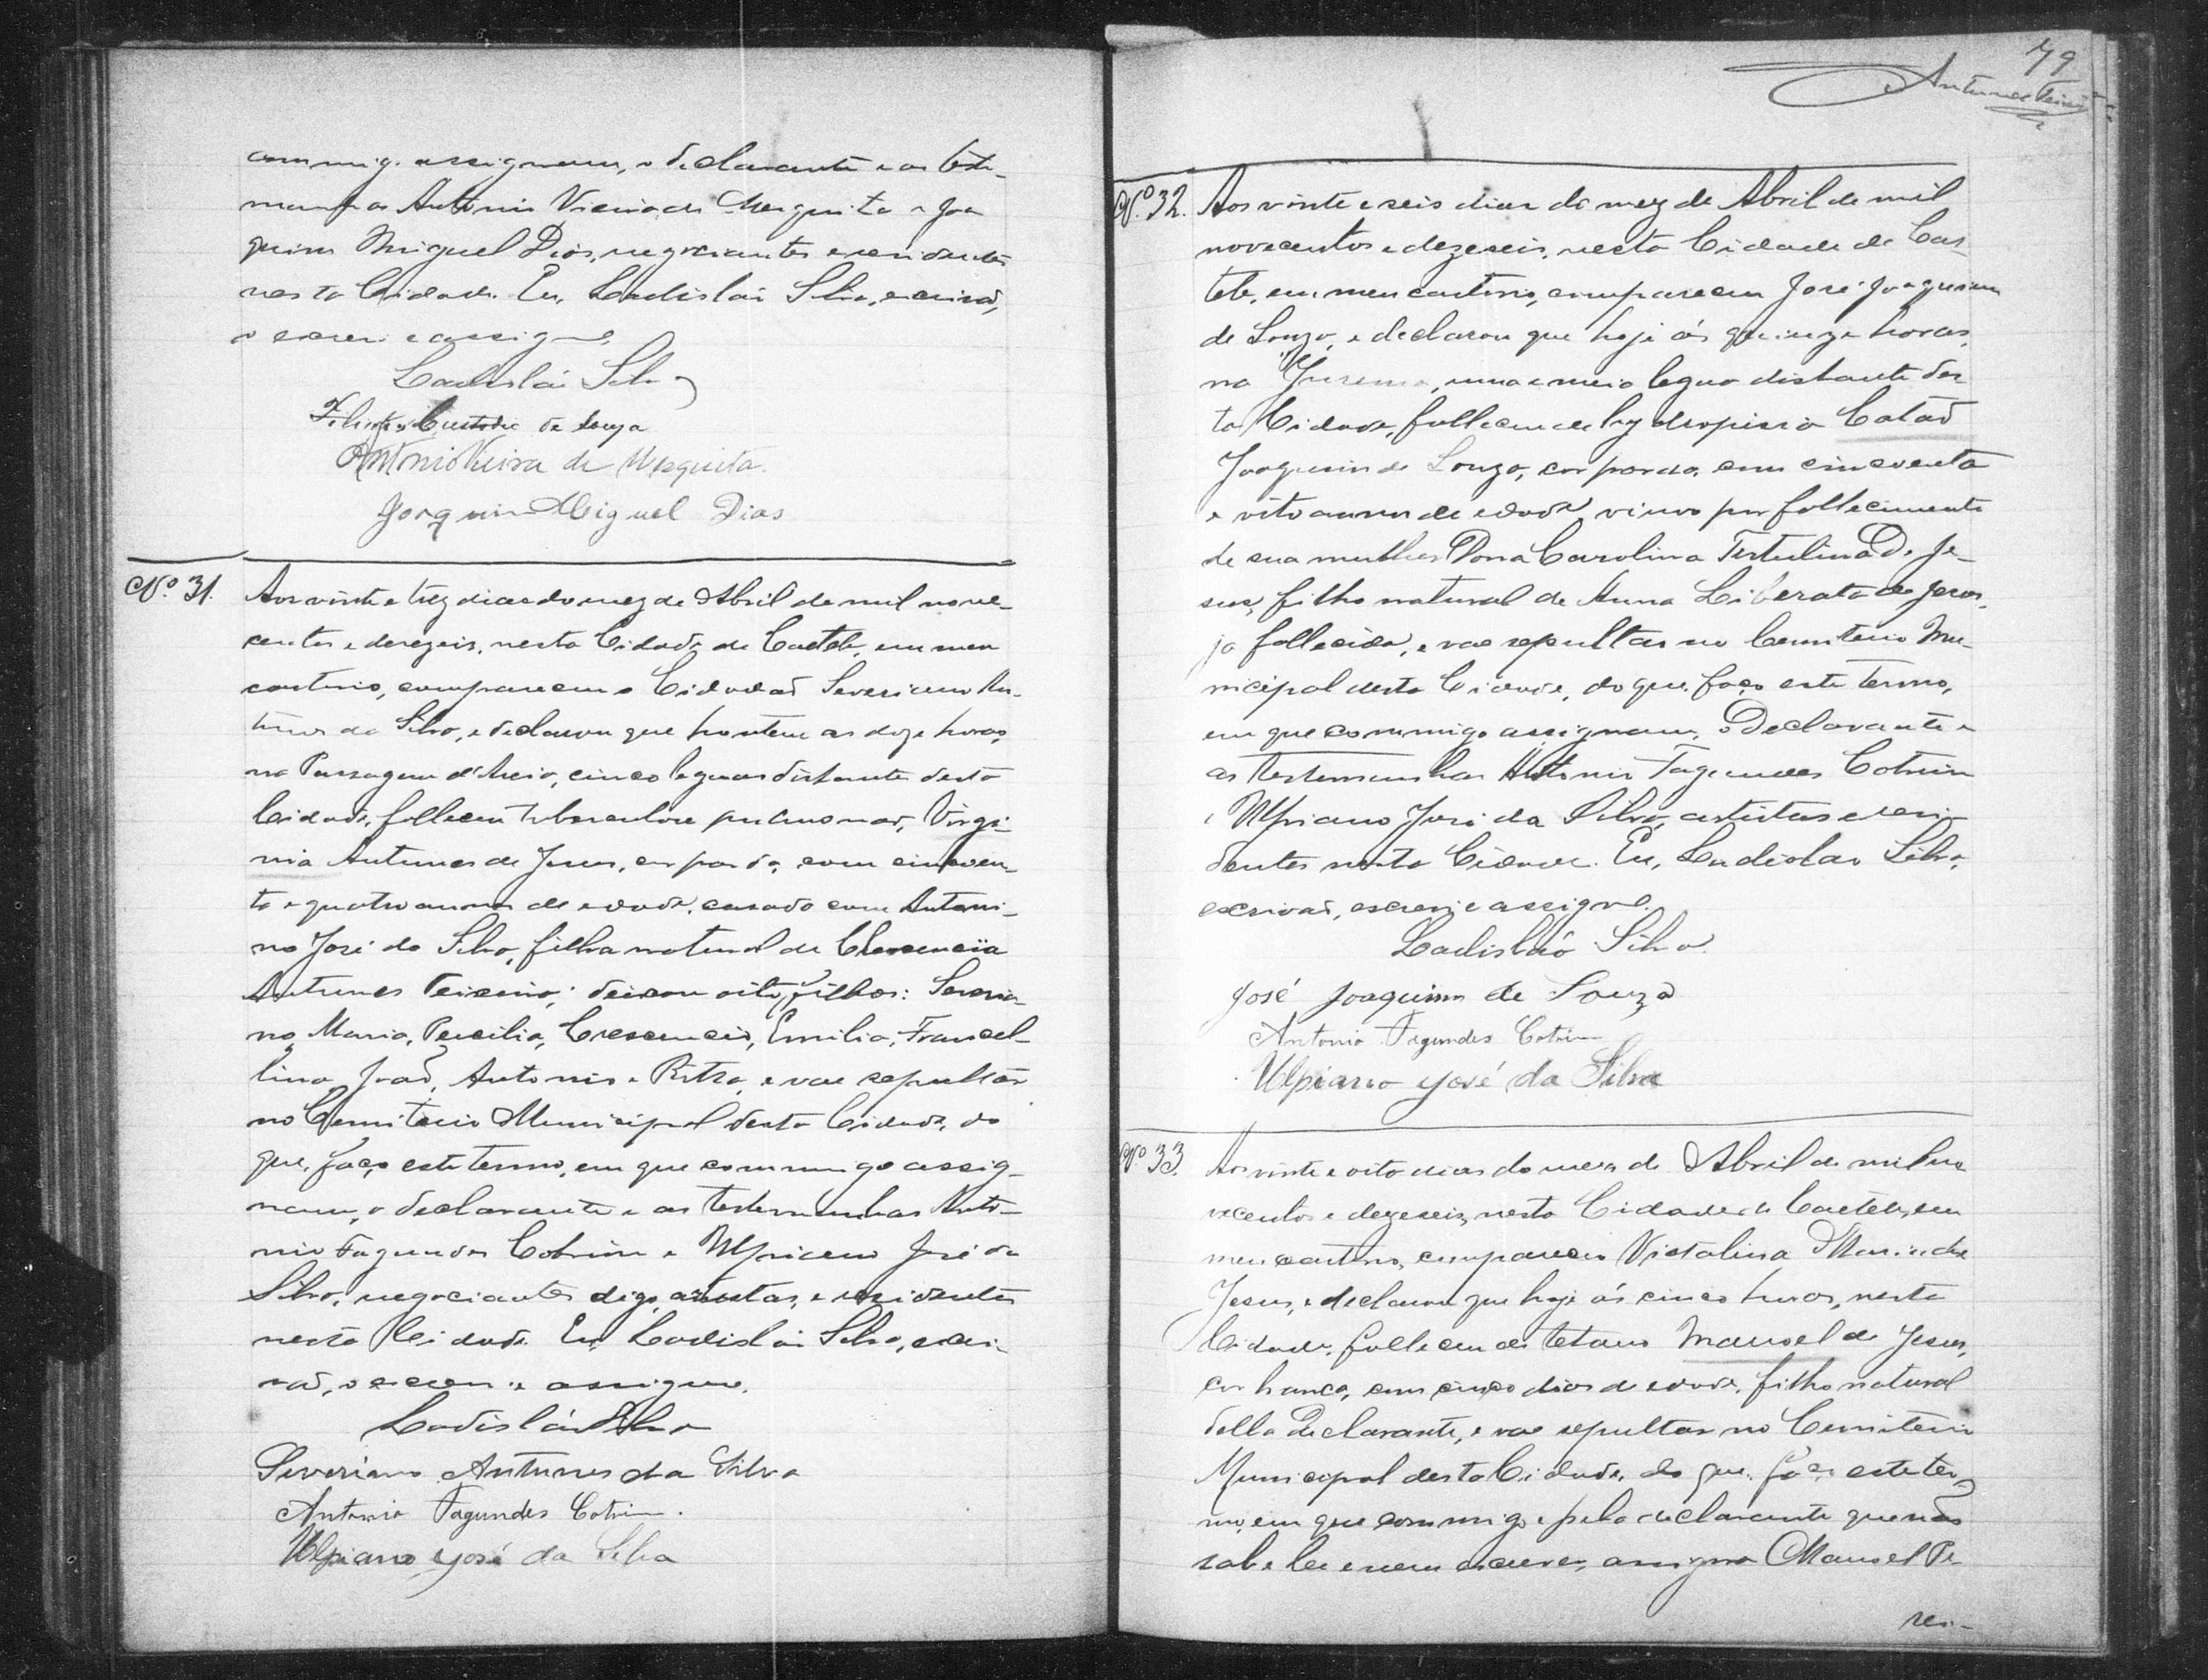 commigo assignam, o declarante e as teste-
munhas Antonio Vieira de Mesquita e Joa
quim Miguel Dias, negociantes e residentes
nesta Cidade. Eu, Ladisláo Silva, escrivão,
o escrevi e assigno
Ladisláo Silva
Custodio de Souza
Antonio Vieira de Mesquita.
Joaquim Miguel Dias
Nº 31. Aos vinte e trez dias do mez de Abril de mil nove-
centos e dezeseis, nesta Cidade de Caeteté, em meu
cartorio, compareceu o Cidadão Severiano An-
tunes da Silva, e declarou que hontem as doze horas,
na Passagem d'Areia, cinco leguas distante desta
Cidade, falleceu tuberculose pulmonar, Virgi-
nia Antunes de Jesus, cor parda, com cincoen-
ta e quatro annos de edade, casada com Antoni-
no José da Silva, filha natural de Clemencia
Antunes Teixeira; deixou oito filhos: Severia-
no, Maria, Percilia, Crescencio, Emilia, Francel-
lina, João, Antonio e Ritta, e vae sepultar
no Cemiterio Municipal desta Cidade, do
que, faço este termo, em que commigo assig-
nam, o declarante e as testemunhas Anto-
nio Fagundes Cotrim e Ulpiano José da
Silva, negociantes digo, artistas, e residentes
nesta Cidade. Eu, Ladisláo Silva, escri-
vão, o escrevi e assigno.
Ladisláo Silva
Severiano Antunes da Silva
Antonio Fagundes Cotrim.
Ulpiano José da Silva
79
Antunes Teixeira
Nº 32. Aos vinte e seis dias do mez de Abril de mil
novecentos e dezeseis, nesta Cidade de Cae
teté, em meu cartorio, compareceu José Joaquim
de Souza, e declarou que hoje ás quinze horas,
na Jurema, uma e meia legua distante des-
ta Cidade, falleceu de hydropisia Catão
Joaquim de Souza, cor parda, com cincoenta
e oito annos de edade, viuvo por fallecimento
de sua mulher Dona Carolina Tertulina de Je-
sus, filho natural de Anna Liberata de Jesus,
ja fallecida, e vae sepultar no Cemiterio Mu-
nicipal desta Cidade, do que, faço este termo,
em que commigo assignam, o Declarante e
as testemunhas Antonio Fagundes Cotrim
e Ulpiano José da Silva, artistas e resi-
dentes nesta Cidade. Eu, Ladislao Silva,
escrivão, escrevi e assigno.
Ladisláo Silva
José Joaquim de Souza
Antonio Fagundes Cotrim
Ulpiano José da Silva
Nº 33. Aos vinte e oito dias do mez de Abril de mil no
vecentos e dezeseis, nesta Cidade de Caeteté, em
meu cartorio, compareceu Victalina Maria de
Jesus, e declarou que hoje ás cinco horas, nesta
Cidade, falleceu de tetano Manoel de Jesus,
cor branca, com cinco dias de edade, filho natural
della declarante, e vae sepultar no Cemiterio
Municipal desta Cidade, do que, faço este ter-
mo, em que commigo e pela declarante que não
sabe ler e nem escrever, assigna Manoel Pe-
rei-